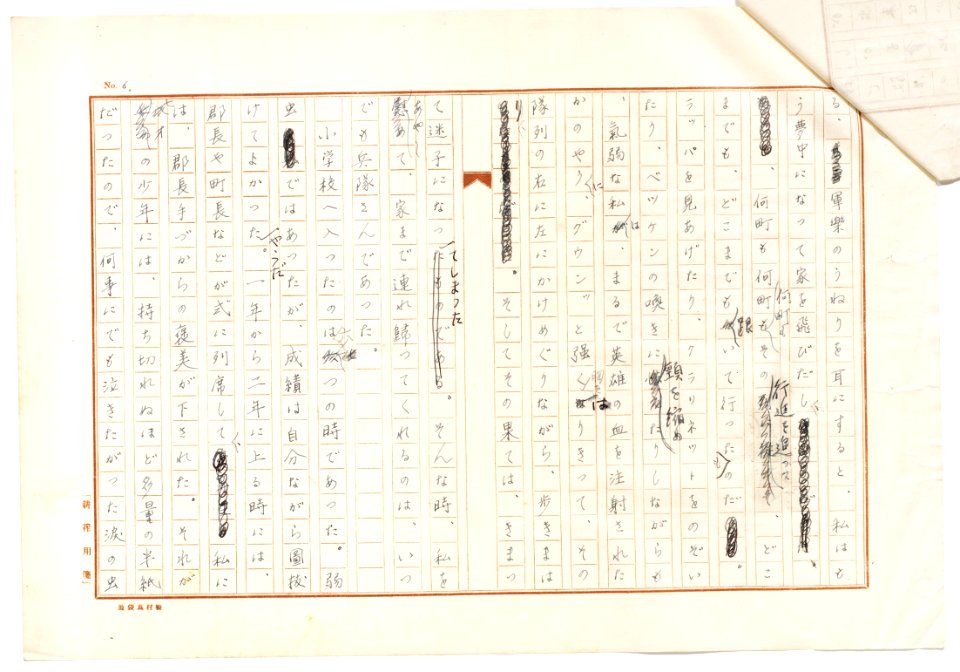 No. 6.
る、軍樂のうねりを耳にすると、私はも
う夢中になつて家を飛びだし、
、何町も何町も何町もその行進を追つて、どこ
までも、どこまでも跟いて行つたものだ。
ラッパを見あげたり、クラリネットをのぞい
たり、ベッケンの喚きに頸を縮めたりしながらも
、氣弱な私は、まるで英雄の血を注射された
かのやうに、グウンッと強くなりきつて、その
隊列の右に左にかけめぐりながら、歩きまは
り、。そしてその果ては、きまつ
て迷子になつてしまつた。そんな時、私を
あやして、家まで連れ歸つてくれるのは、いつ
でも兵隊さんであつた。
小学校へ入つたのは六つの時であつた。弱
虫ではあつたが、成績は自分ながら圖拔
けてよかつたやうだ。一年から二年に上る時には、
郡長や町長などが式に列席して、私に
は、郡長手づからの褒美が下された。それが
の少年には、持ち切れぬほど多量の半紙
だつたので、何事にでも泣きたがつた涙の虫